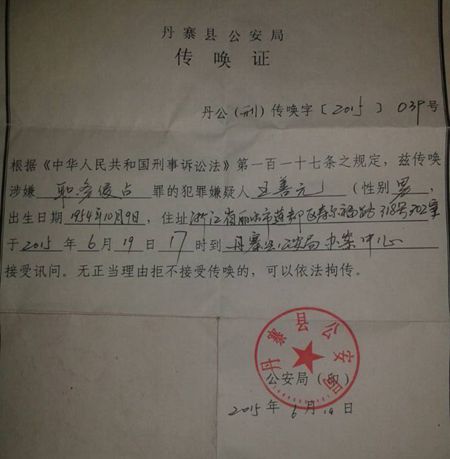 丹寨县公安局
传唤证
丹公（刑）传唤字〔2015〕039号
根据《中华人民共和国刑事诉讼法》第一百一十七条之规定，兹传唤
涉嫌 职务侵占 罪的犯罪嫌疑人 王善元 （性别 男 ，
出生日期 1954年10月9日，住址 浙江省丽水市莲都区寿尔福路318号302室
于 2015 年 6 月 19 日 17 时到 丹寨县公安局办案中心
接受讯问。无正当理由拒不接受传唤的，可以依法拘传。
丹寨县公安局
公安局（印）
2015年6月19日